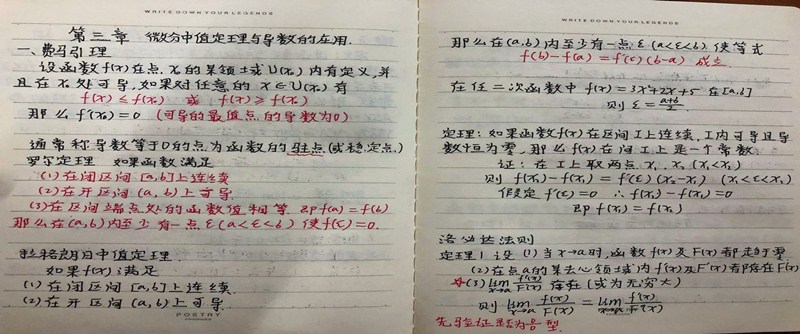 WRITE DOWN YOUR LEGENDS
第三章 微分中值定理与导数的应用.
一、费马引理
设函数f(x)在点x₀的某领域U(x₀)内有定义,并
且在x₀处可导,如果对任意的x∈U(x₀)有
f(x)≤f(x₀) 或 f(x)≥f(x₀)
那么f'(x₀)=0 (可导的最值点的导数为0)
通常称导数等于0的点为函数的驻点(或稳定点.)
罗尔定理 如果函数满足
(1)在闭区间[a,b]上连续
(2)在开区间(a,b)上可导.
(3)在区间端点处的函数值相等 即f(a)=f(b)
那么在(a,b)内至少有一点ξ(a<ξ<b)使f'(ξ)=0.
拉格朗日中值定理
如果f(x)满足
(1)在闭区间[a,b]上连续
(2)在开区间(a,b)上可导.
POETRY
WRITE DOWN YOUR LEGENDS
那么在(a,b)内至少有一点ξ(a<ξ<b)使等式
f(b)-f(a)=f'(ξ)(b-a) 成立.
在任二次函数中 f(x)=3x²+2x+5 在[a,b]
则ξ=(a+b)/2.
定理:如果函数f(x)在区间I上连续,I内可导且导
数恒为零,那么f(x)在间I上是一个常数.
证:在I上取两点x₁、x₂(x₁<x₂)
则f(x₂)-f(x₁)=f'(ξ)(x₂-x₁) (x₁<ξ<x₂)
假定f'(ξ)=0 ∴f(x₂)-f(x₁)=0
即f(x₂)=f(x₁)
洛必达法则
定理1 设(1)当x→a时,函数f(x)及F(x)都趋于零
(2)在点a的某去心领域内f'(x)及F'(x)都存在F'(x)
(3)lim x→a f'(x)/F'(x) 存在(或为无穷大)
则 lim x→a f(x)/F(x) = lim x→a f'(x)/F'(x)
先验证是否为0/0型